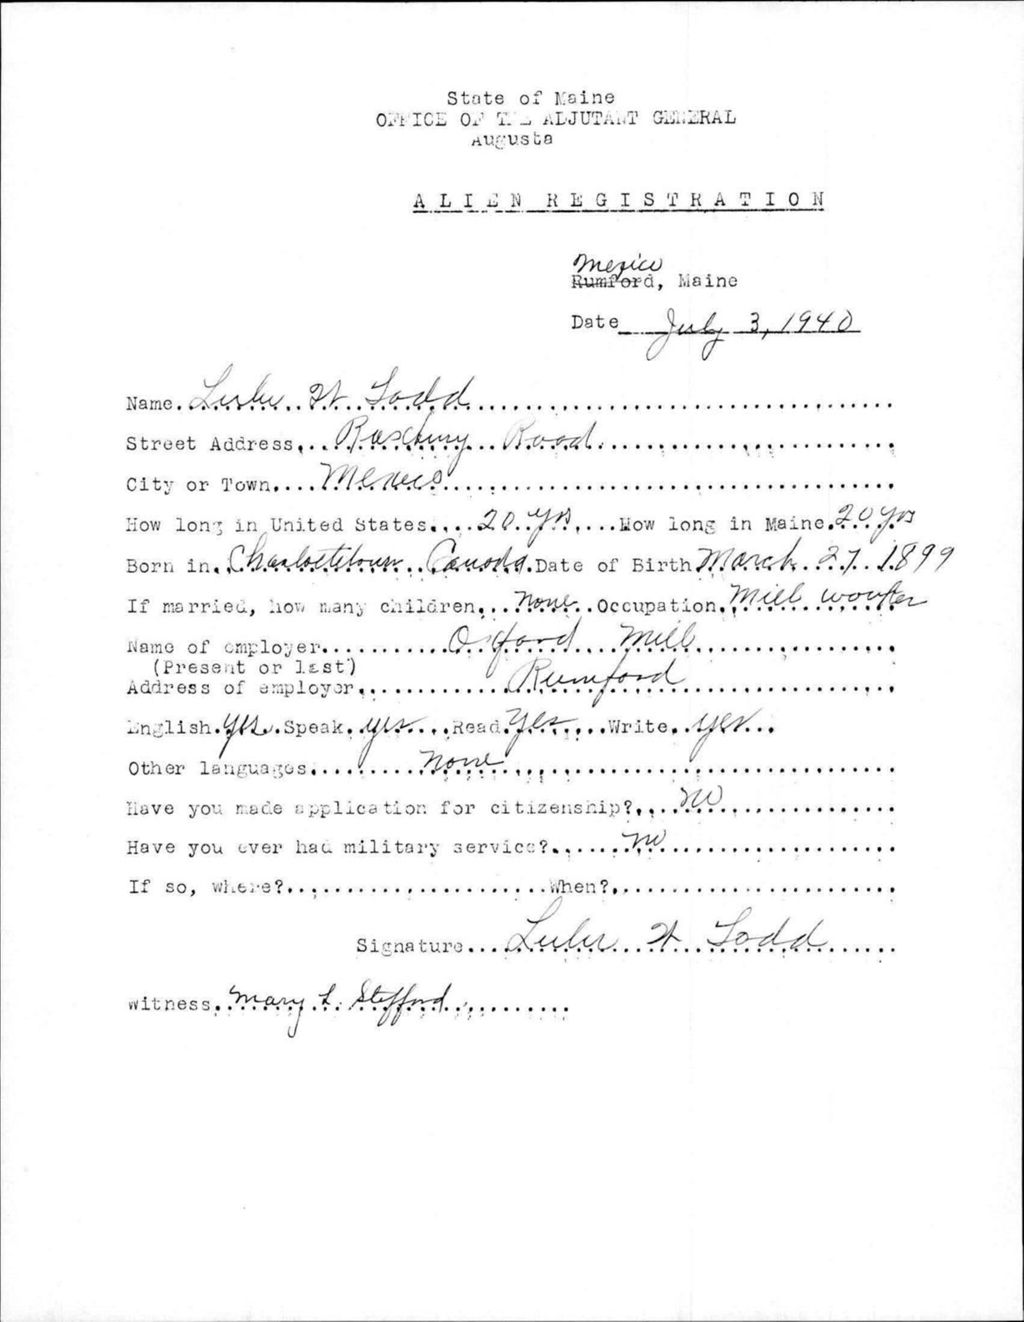 State of Maine
OFFICE OF THE ADJUTANT GENERAL
Augusta
ALIEN REGISTRATION
Mexico
Rumford, Maine
Date July 3, 1940
Name. Leslie W. Todd
Street Address... Roxbury Road
City or Town.... Mexico
How long in United States.... 20 yrs .... How long in Maine. 20 yrs
Born in. Charlottetown Canada. Date of Birth March 27 1899
If married, how many children... None.. Occupation. Mill worker
Name of employer........... Oxford Mill
(Present or last)
Address of employer........... Rumford
English. yes. Speak. yes... Read. Yes.... Write. yes...
Other languages........ None
Have you made application for citizenship?... No
Have you ever had military service?...... No
If so, where?....................... When?.......................
Signature... Leslie W Todd......
Witness. Mary L. Stefford